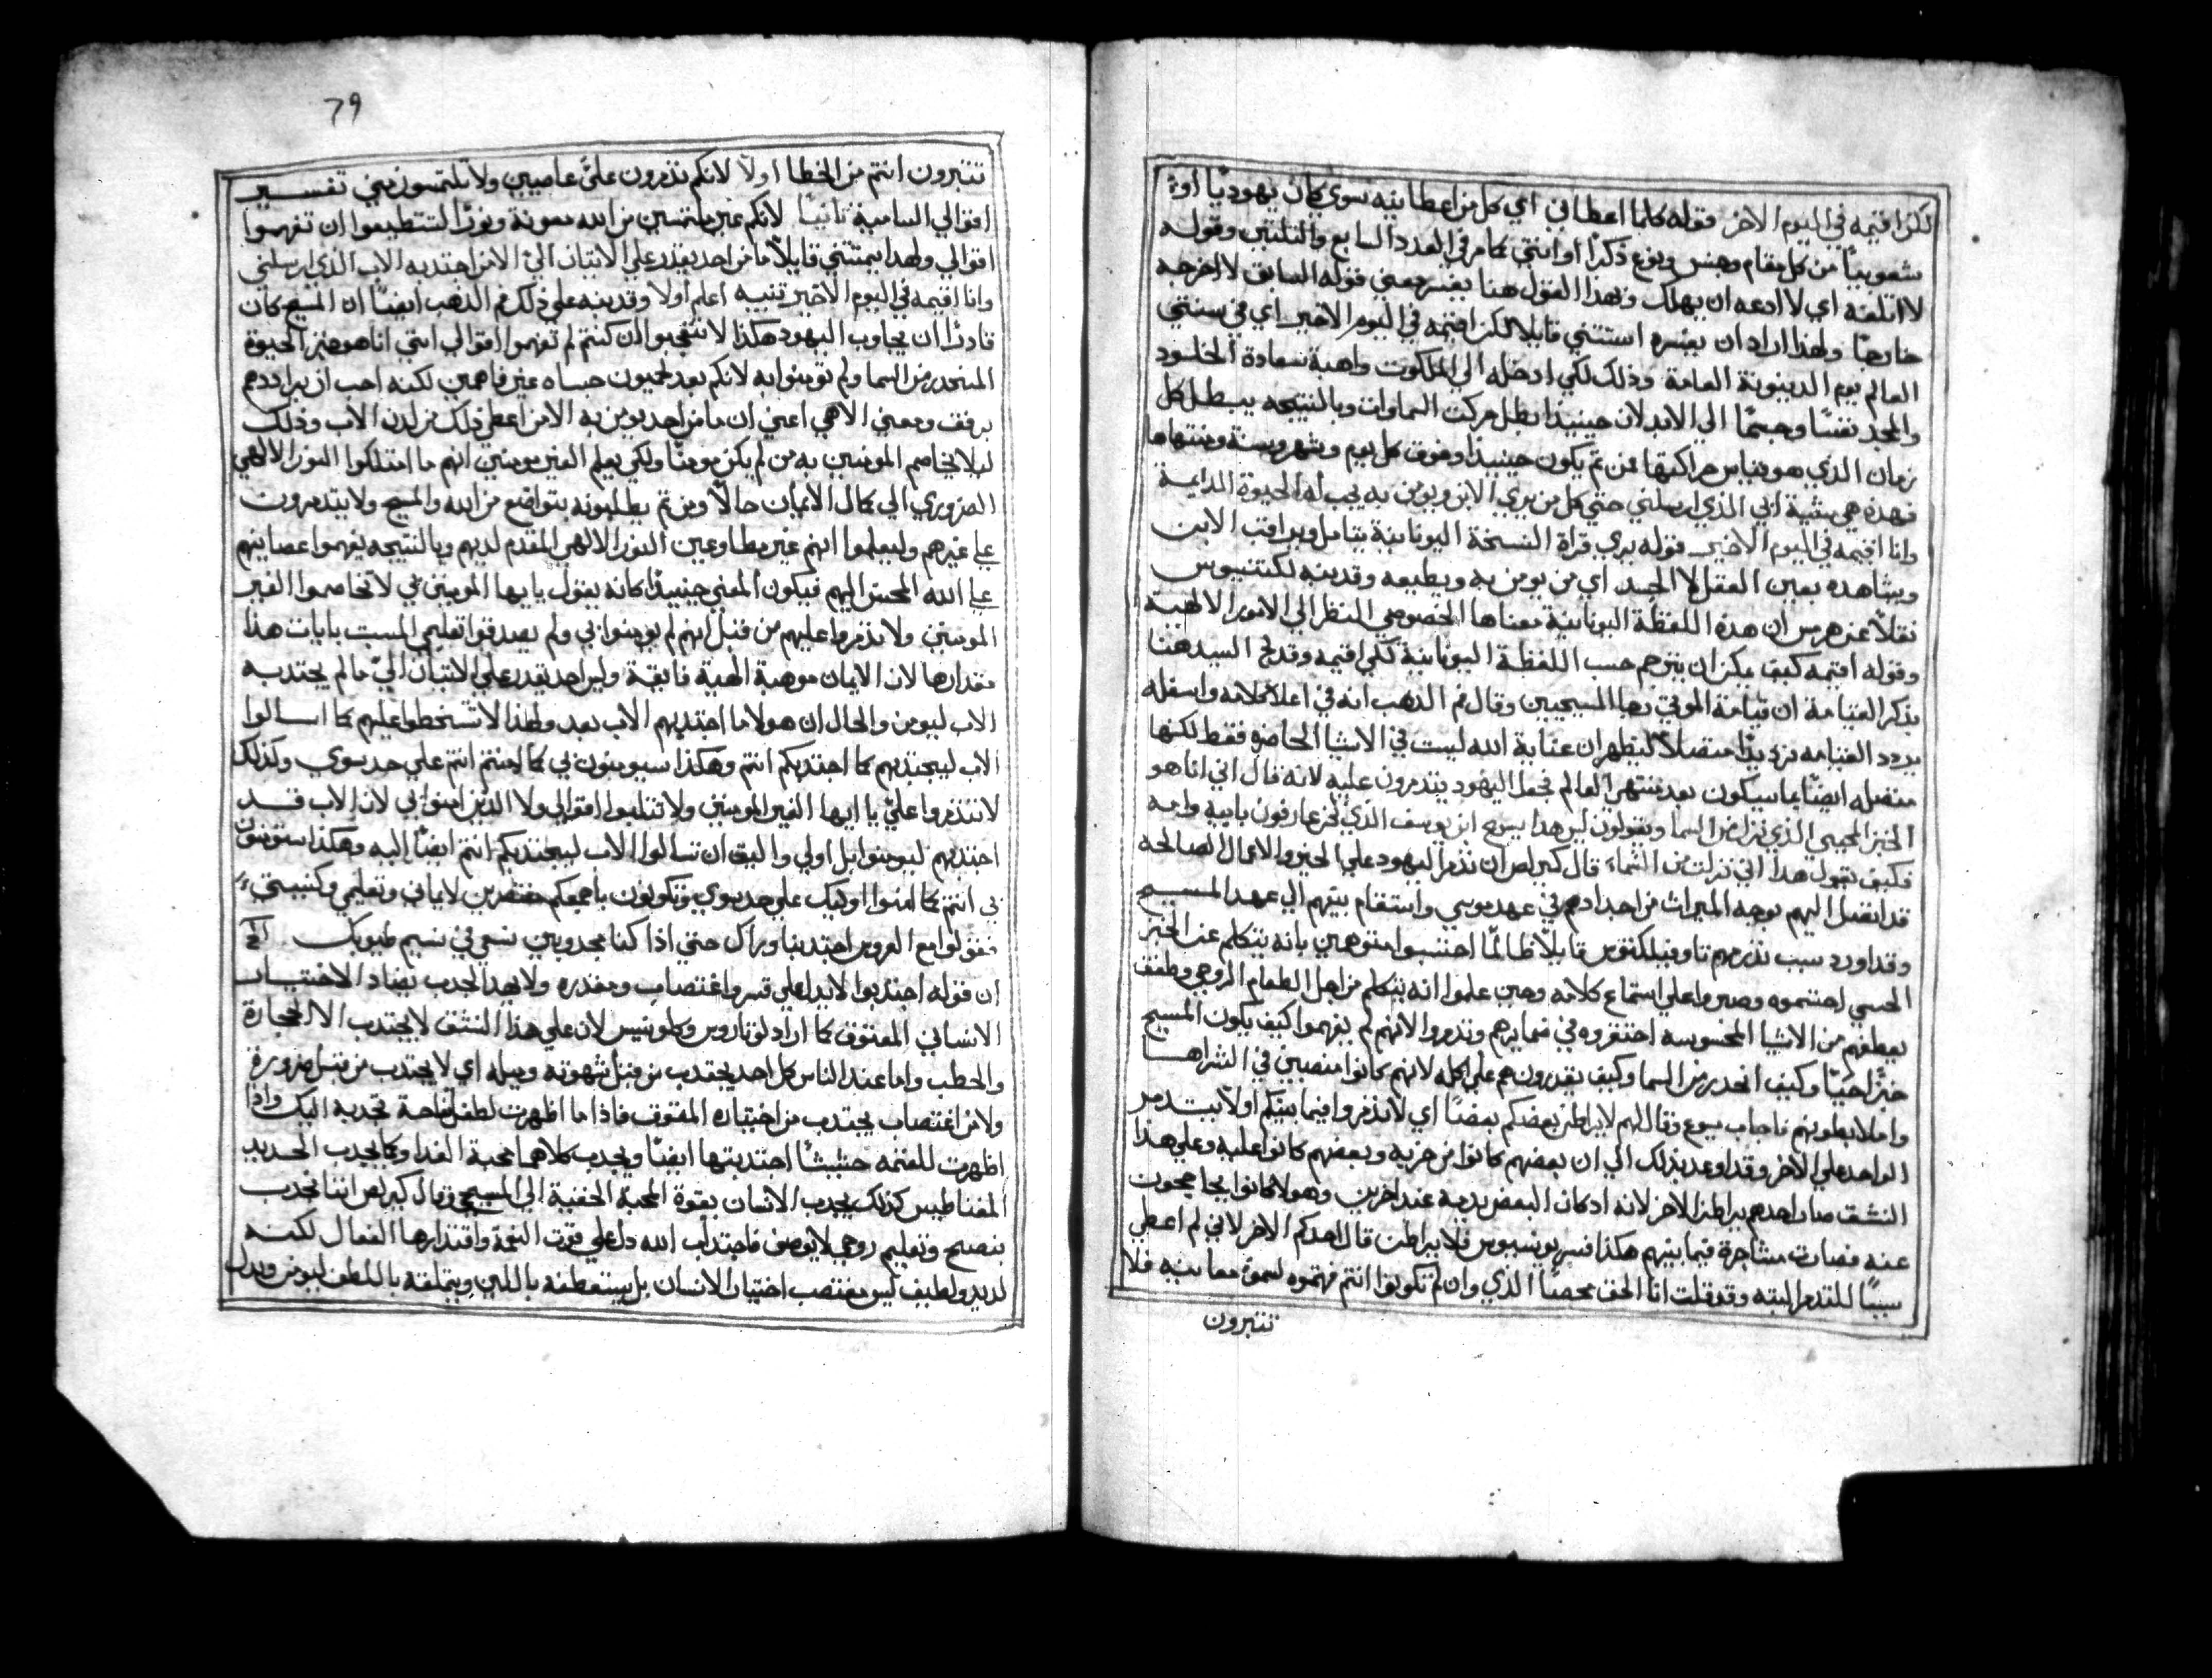 لكن اقيمه في اليوم الاخر فقوله كلما اعطاني اي كل من اعطانيه سوي كان يهوديًا او
شعوبيًا من كل مقام وجنس ونوع ذكرًا او انثي كما مر في العدد السابع والثلثين وقوله
لا اتلفه اي لا ادعه ان يهلك وبهذا القول هنا يفسر معني قوله السابق لا اخرجه
خارجًا ولهذا اراد ان يفسره استثني قايلا لكن اقيمه في اليوم الاخير اي في منتهي
العالم يوم الدينونة العامة وذلك لكي ادخله الي الملكوت واهبه سعادة الخلود
والمجد نفسًا وجسمًا الي الابد لان حينيذ تبطل حركت السماوات وبالنتيجه يبطل كل
زمان الذي هو قياس حراكتها فمن ثم يكون حينيذ وفوق كل يوم وشهر وسنة ومنتهاها
فهذه هي مشية ابي الذي ارسلني حتي كل من يري الابن ويومن به يجب له الحيوة الدايمة
وانا اقيمه في اليوم الاخير قوله يري قراة النسخة اليونانية يتامل ويراقب الابن
ويشاهده بعين العقل لا الجسد اي من يومن به ويطيعه وقد نبه لكنتيوس
نقلًا عن هرمس ان هذه اللفظة اليونانية معناها الخصوصي النظر الي الامور الالهية
وقوله اقيمه كيف يمكن ان يترجم حسب اللفظة اليونانية لكي اقيمه وقد لمح السيد هنا
بذكر القيامة ان قيامة الموتي رجا المسيحيين وقال فم الذهب انه في اعلا كلامه واسفله
يردد القيامه ترديدًا متصلًا ليظهر ان عناية الله ليست في الاشيا الحاضره فقط لكنها
متصله ايضًا بما سيكون بعد منتهي العالم فجعل اليهود يتذمرون عليه لانه قال اني انا هو
الخبز المحيي الذي نزل من السما ويقولون ليس هذا يسوع ابن يوسف الذي نحن عارفون بابيه وامه
فكيف يقول هذا اني نزلت من السماء قال كيرلص ان تذمر اليهود علي الخير والاعمال الصالحه
قد اتصل اليهم بوجه الميراث من اجدادهم في عهد موسي واستقام بينهم الي عهد المسيح
وقد اورد سبب تذمرهم تاوفيلكتوس قايلًا ظالمًا احتسبوا متوهمين بانه يتكلم عن الخبز
الحسي احتشموه وصبروا علي استماع كلامه وحين علموا انه يتكلم من اجل الطعام الروحي
يعطفهم من الاشيا المحسوسه احتقروه في ضمايرهم وتذمروا لانهم لم يفهموا كيف يكون المسيح
خبزًا حيًا وكيف انحدر من السما وكيف يقدرون هم علي اكله لانهم كانوا منصبين في الشراهه
واملا بطونهم فاجاب يسوع وقال لهم لا يراطن بعضكم بعضًا اي لا تذمروا فيما بينكم اولًا يتذمر
الواحد علي الاخر وقد اوعد بذلك الي ان بعضهم كانوا من حزبه وبعضهم كانوا عليه وعلي هذا
النشق صار احدهم يراطن الاخر لانه اذ كان البعض يذمه عند اخرين وهولا كانوا يحاججون
عنه فصارت مشاجرة فيما بينهم هكذا فسر يونسيوس فلا يراطن قال احدكم الاخر لاني لم اعطي
سببًا للتذمر البته وقد قلت انا الحق محضًا الذي وان لم تكونوا انتم فهمتوه لسمو معانيه فلا
تتبرون
79
تتبرون انتم من الخطا اولًا لانكم تذمرون عليّ عاصيين ولا تلتمسون مني تفسير
اقوالي السامية ثانيًا لانكم غير ملتمسين من الله معونة ونورًا لتستطيعوا ان تفهموا
اقوالي ولهذا يمتثني قايلًا ما من احد يقدر علي الاتيان اليّ الا من اجتذبه الاب الذي ارسلني
وانا اقيمه في اليوم الاخير تنبيه اعلم اولًا وقد نبه علي ذلك فم الذهب ايضًا ان المسيح كان
قادرًا ان يجاوب اليهود هكذا لا تتعجبوا ان كنتم لم تفهموا اقوالي انني انا هو خبز الحيوة
المنحدر من السما ولم تومنوا به لانكم بعد لحميون غير فاهمين لكنه احب ان يراددهم
برفق ومعني الاهي اعني ان ما من احد يومن به الا من اعطي ذلك من لدن الاب وذلك
ليلا يخاصم المومنين به من لم يكن مومنًا ولكي يعلم الغير مومنين انهم ما امتلكوا النور الالهي
الضروري الي كمال الايمان حالًا ومن ثم يطلبونه بتواضع من الله والمسيح ولا يتذمرون
علي غيرهم وليعلموا انهم غير مطاوعين النور الالهي المقدم لديهم وبالنتيجه يفهموا عصاينهم
علي الله المحسن اليهم فيكون المعني حينيذ كانه يقول يا ايها المومنين بي لا تخاصموا الغير
المومنين ولا تذمروا عليهم من قبل انهم لم يومنوا بي ولم يصدقوا تعليمي المثبت بايات هذا
مقدارها لان الايمان موهبة الهية فايقة وليس احد يقدر علي الاتيان اليّ ما لم يجتذبه
الاب ليومن والحال ان هولا ما اجتذبهم الاب بعد ولهذا لا تسخطوا عليهم كما اسالوا
الاب ليجتذبهم كما اجتذبكم انتم وهكذا سيومنون بي كما امنتم انتم علي حد سوي وكذلك
لا تتذمروا عليّ يا ايها الغير المومنين ولا تثلبوا اقوالي ولا الذين امنوا بي لان الاب قد
اجتذبهم ليومنوا بل اولي واليق ان تسالوا الاب ليجتذبكم انتم ايضًا اليه وهكذا ستومنون
بي انتم كما امنوا اوليك علي حد سوي وتكونون باجمعكم مقتصرين لايماني وتعليمي وكنيستي
فقولوا مع العروس اجتذبنا وراك حتي اذا كنا مجذوبين نسعي في نسيم طيوبك
ان قوله اجتذبوا لا يدل علي قسر واغتصاب ومقدره ولا بهذا الجذب يضاد الاختيار
الانساني المعتوق كما اراد لوتاروس وكلوينيس لان علي هذا النشق لا يجتذب الا الحجارة
والحطب واما عند الناس كل احد يجتذب من قبل شهوته وميله اي لا يجتذب من قبل ضرورة
ولا من اغتصاب يجتذب من اختياره المعتوق فاذا ما اظهرت لطفل تفاحة تجذبه اليك واذا
اظهرت للغنمه حشيشًا اجتذبتها ايضًا ويجذب كلاهما محبة الغذا وكما يجذب الحديد
المغناطيس كذلك يجذب الانسان بقوة المحبة الخفية الي المسيح وقال كيرلص اننا نجذب
بنصح وتعليم روحي لا يوصف فاجتذاب الله دل علي قوت النعمة واقتدارها الفعال لكنه
لذيذ ولطيف ليس مغتصب اختيار الانسان بل يستعطفه باللين ويتملقه باللطف ليومن